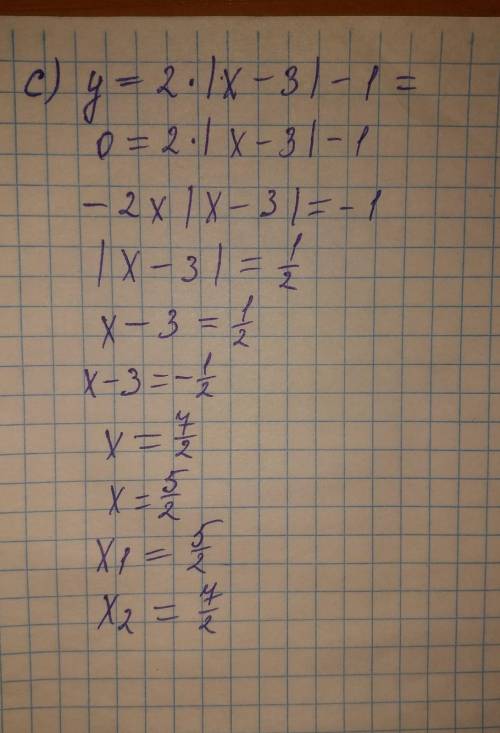 c) y = 2·|x − 3| − 1 =
0 = 2·|x − 3| − 1
− 2x |x − 3| = − 1
|x − 3| = 1/2
x − 3 = 1/2
x − 3 = − 1/2
x = 7/2
x = 5/2
x1 = 5/2
x2 = 7/2